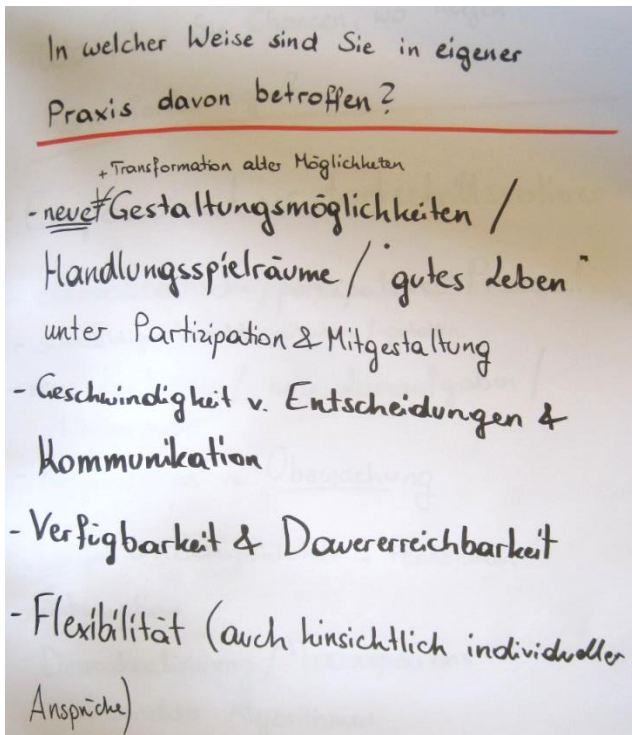 In welcher Weise sind Sie in eigener
Praxis davon betroffen?
+ Transformation alter Möglichkeiten
- neue Gestaltungsmöglichkeiten /
Handlungsspielräume / "gutes Leben"
unter Partizipation & Mitgestaltung
- Geschwindigkeit v. Entscheidungen &
Kommunikation
- Verfügbarkeit & Dauererreichbarkeit
- Flexibilität (auch hinsichtlich individueller
Ansprüche)